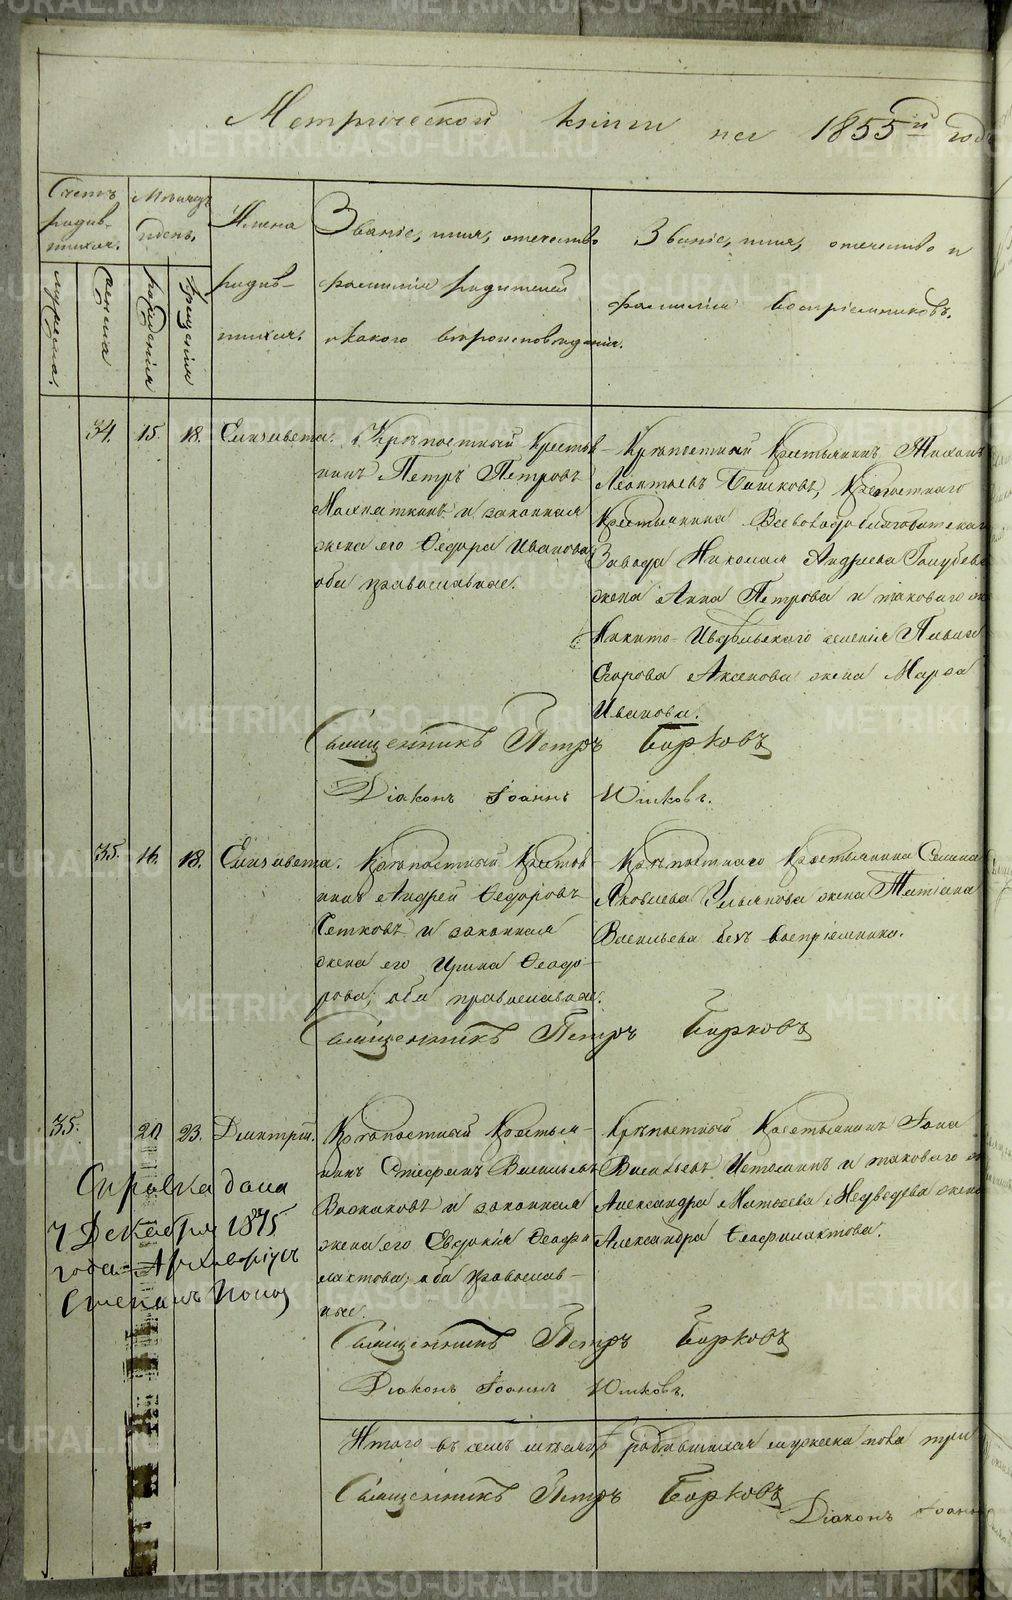 Метрической книги на 1855й годъ
Счетъ родив-шихся.
Мѣсяцъ и день.
Имена родив-шихся.
Званіе, имя, отечество фамилія родителей и какого вѣроисповѣданія.
Званіе, имя, отечество и фамилія воспріемниковъ.
мужеска.
женска
рожденія
крещенія
34. 15. 18. Елизавета.
Крѣпостный Крестья-
нинъ Петръ Петровъ
и законная
жена его Ѳедора Иванова
оба православные.
Крѣпостный Крестьянинъ Тихонъ
Леонтьевъ Башковъ, Крѣпостнаго
Крестьянина Всеволодоблагодатскаго
Завода Николая Андреева Голубева
жена Анна Петрова и таковаго же
Никито-Ивдельского селенія Павла
Егорова Аксенова жена Марѳа
Иванова.
Священникъ Петръ Бирковъ
Діаконъ Іоаннъ Юшковъ.
35. 16. 18. Елизавета.
Крѣпостный Крестья-
нинъ Андрей Ѳедоровъ
Сетковъ и законная
жена его Ирина Ѳеодо-
рова, оба православные.
Крѣпостнаго Крестьянина Семена
Яковлева Ульянова жена Татіана
Васильева безъ воспріемника.
Священникъ Петръ Бирковъ
35. 20 23. Дмитрій.
Крѣпостный Крестья-
нинъ Стефанъ Васильевъ
и законная
жена его Евдокія Ѳеофи
лактова, оба православ-
ные
Крѣпостный Крестьянинъ Іона
Васильевъ Истоминъ и таковаго же
Александра Матвѣева Медведева жена
Александра Ѳеофилактова.
Справка дана
7 Декабря 1875
года Архиваріусъ
Степанъ Попов
Священникъ Петръ Бирковъ
Діаконъ Іоаннъ Юшковъ.
Итого въ семъ мѣсяцѣ родившихся мужеска пола три
Священникъ Петръ Бирковъ
Діаконъ Іоаннъ
METRIKI.GASO-URAL.RU